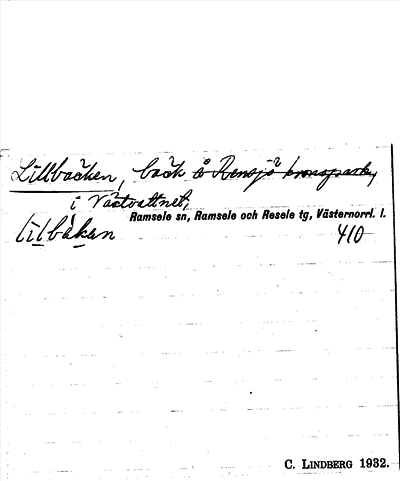 Lillbäcken, bäck å Rensjö kronopark,
i Västvattnet,
Ramsele sn, Ramsele och Resele tg, Västernorrl. l.
lilbäkan 410
C. LINDBERG 1932.